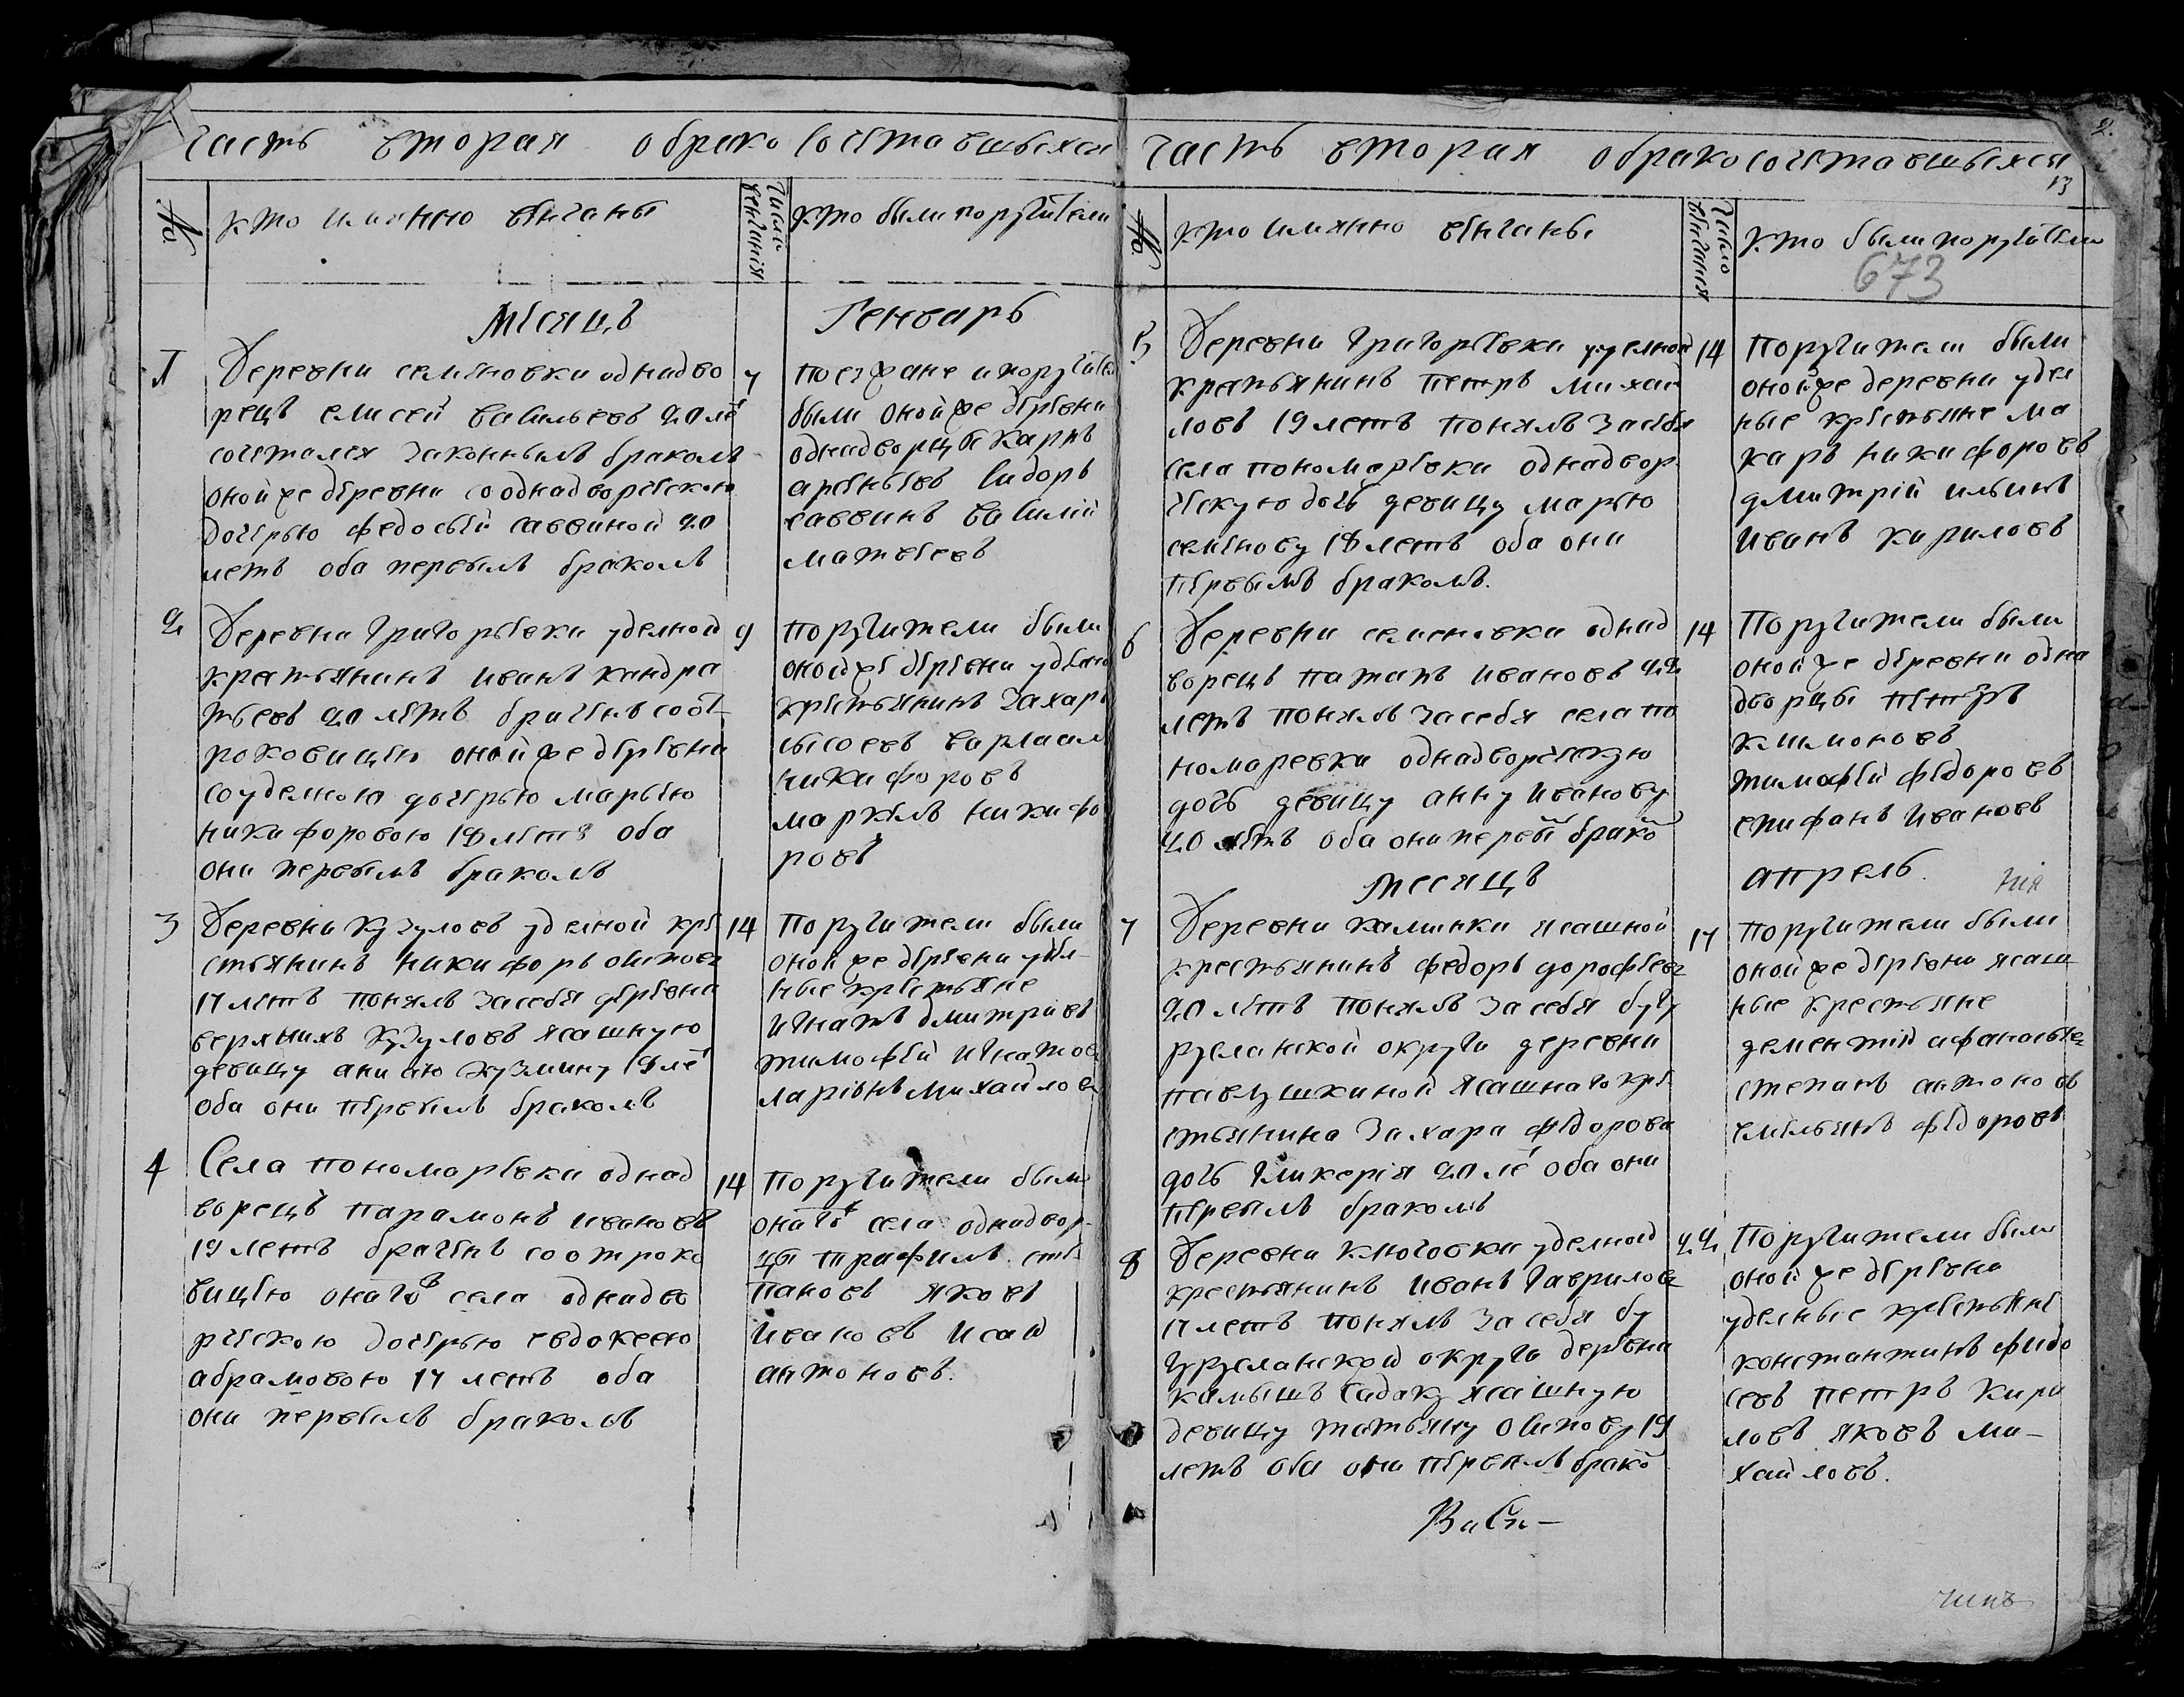 часть вторая обракосочетавшыхся
№
кто имянно венчаны
число венчания
кто были поручители
месяцъ Генварь
1
Деревни семеновки однадво
рецъ елисей васильевъ 20 ле
сочетался законнымъ бракомъ
оной же деревни со однадворческою
дочерью федосьей саввиной 20
летъ оба первымъ бракомъ
7
поезжане и поручители
были оной же деревни
однадворцы Карпъ
арсеньевъ Сидоръ
саввинъ василий
матвеевъ
2
Деревни григорьевки уделной
крестьянинъ иванъ кандра
тьевъ 20 летъ браченъ сост
роковицею оной же деревни
со уделною дочерью марьею
никифоровою 18 летъ оба
они первымъ бракомъ
9
поручители были
оной же деревни уделно
крестьянинъ Захаръ
сысоевъ варлаам
никифоровъ
маркелъ никифо
ровъ
3
Деревни Кузуловъ уделной кре
стьянинъ никифоръ осиповъ
17 летъ понялъ засебя деревни
верхнихъ Кузуловъ ясашную
девицу анисью кузмину 18 ле
оба они первымъ бракомъ
14
поручители были
оной же деревни удел-
ные крестьяне
игнатъ дмитриевъ
тимофей игнатов
ларионъ михайлов
4
Села пономаревки однад
ворецъ парамонъ ивановъ
19 летъ браченъ со отроко
вицею онаго села однадво
рческою дочерью евдокеею
абрамовою 17 летъ оба
они первымъ бракомъ
14
поручители были
онаго села однадвор-
цы трафимъ сте
пановъ яковъ
ивановъ исай
антоновъ.
часть вторая обракосочетавшыхся
13
№
кто имянно венчаны
число венчания
кто были поручители
673
5
Деревни григорьевки уделной
крестьянинъ петръ михай
ловъ 19 летъ понялъ засебя
села пономаревки однадвор
ческую дочь девицу марью
семенову 18 летъ оба они
первымъ бракомъ.
14
поручители были
оной же деревни удел
ные крестьяне ма
каръ никифоровъ
дмитрий ильинъ
иванъ кириловъ
6
Деревни семеновки однад
ворецъ патапъ ивановъ 22
летъ понялъ засебя села по
номаревки однадворческую
дочь девицу анну иванову
20 летъ оба они первы брако
14
Поручители были
оной же деревни одна
дворцы петръ
климоновъ
тимофей федоровъ
епифанъ ивановъ
месяцъ апрель.
7
Деревни калинки ясашной
крестьянинъ федоръ дорофеевъ
20 летъ понялъ за себя бугу
русланской округи деревни
павлушкиной ясашнаго кре
стьянина Захара федорова
дочь гликерия 20 ле оба они
первымъ бракомъ
17
поручители были
оной же деревни ясаш
ные крестьяне
дементий афанасьев
степанъ антоновъ
емельянъ федоровъ
8
Деревни ключовки уделной
крестьянинъ иванъ гавриловъ
17 летъ понялъ за себя бу
гурусланской округи деревни
камышъ садаку ясашную
девицу татьяну осипову 19
летъ оба они первымъ брако
22
Поручители были
оной же деревни
уделные крестьяне
константинъ федо
севъ петръ кири
ловъ яковъ ми-
хайловъ.